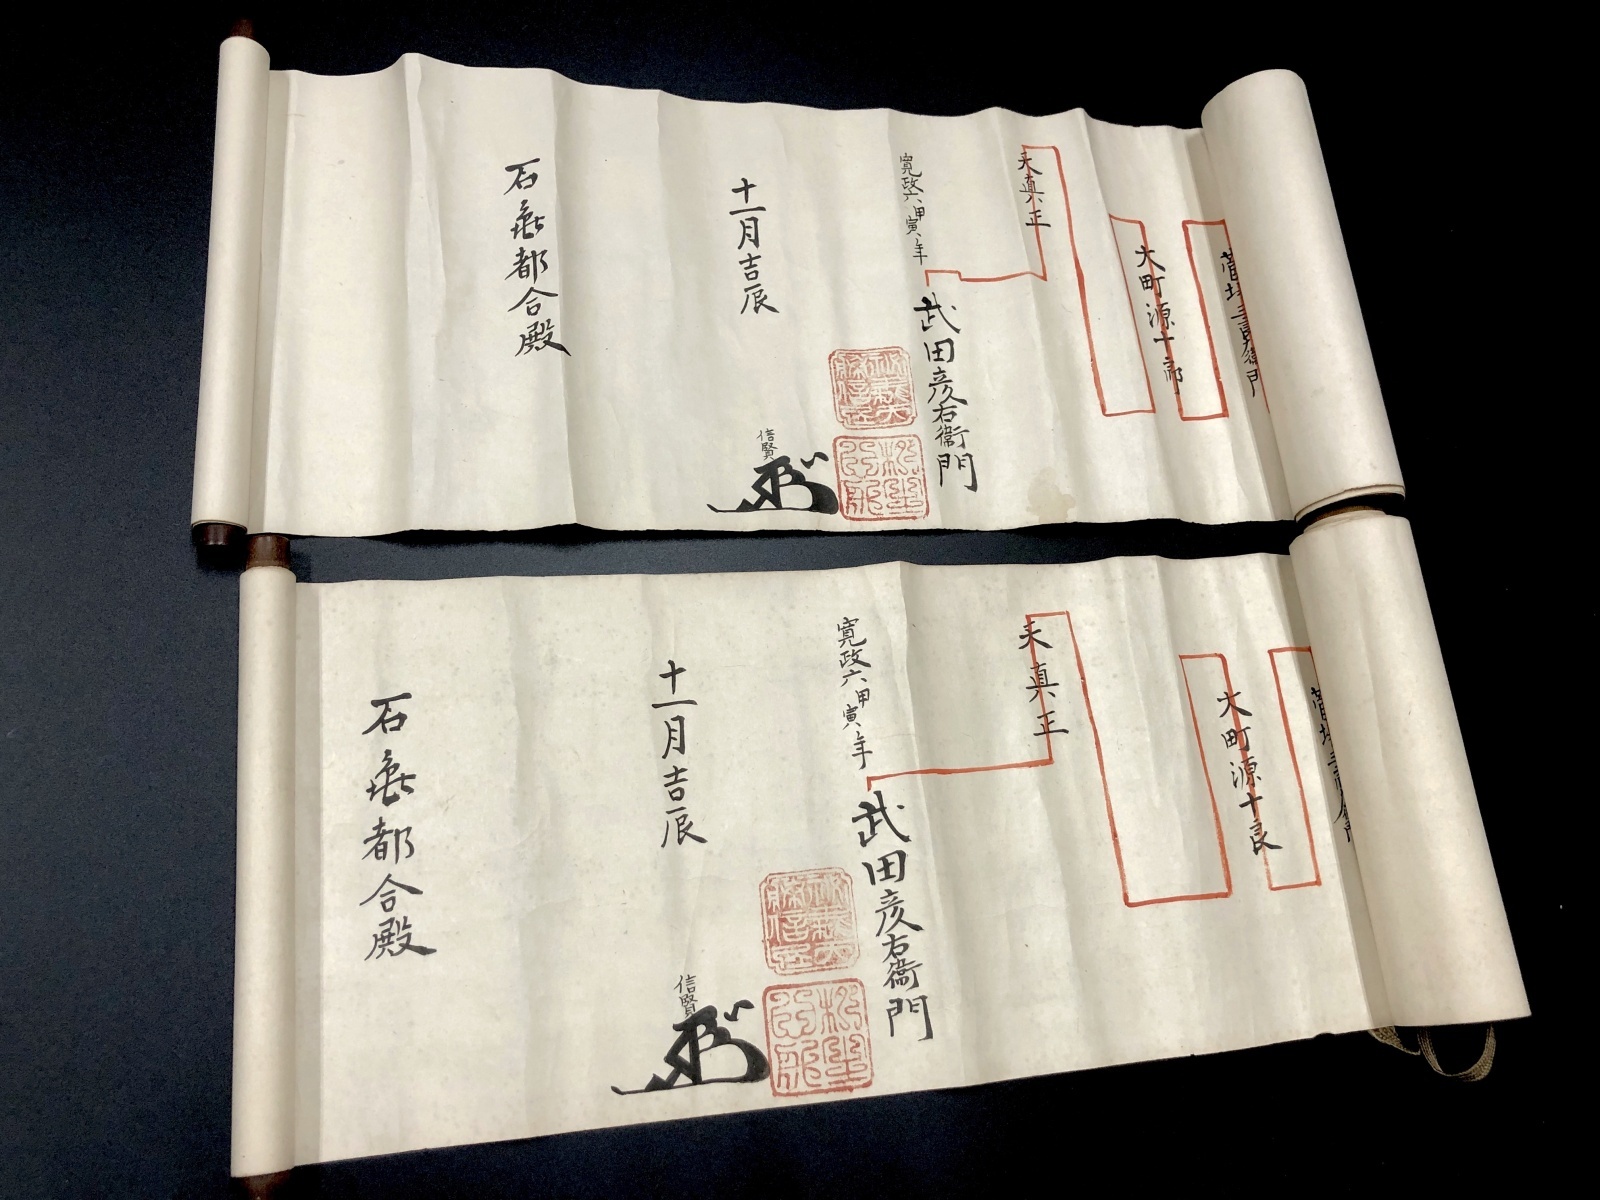 大町源十郎
天真正
武田彦右衛門
寛政六甲寅年
信賢
十一月吉辰
石亀都合殿
大町源十良
天真正
武田彦右衛門
寛政六甲寅年
信賢
十一月吉辰
石亀都合殿